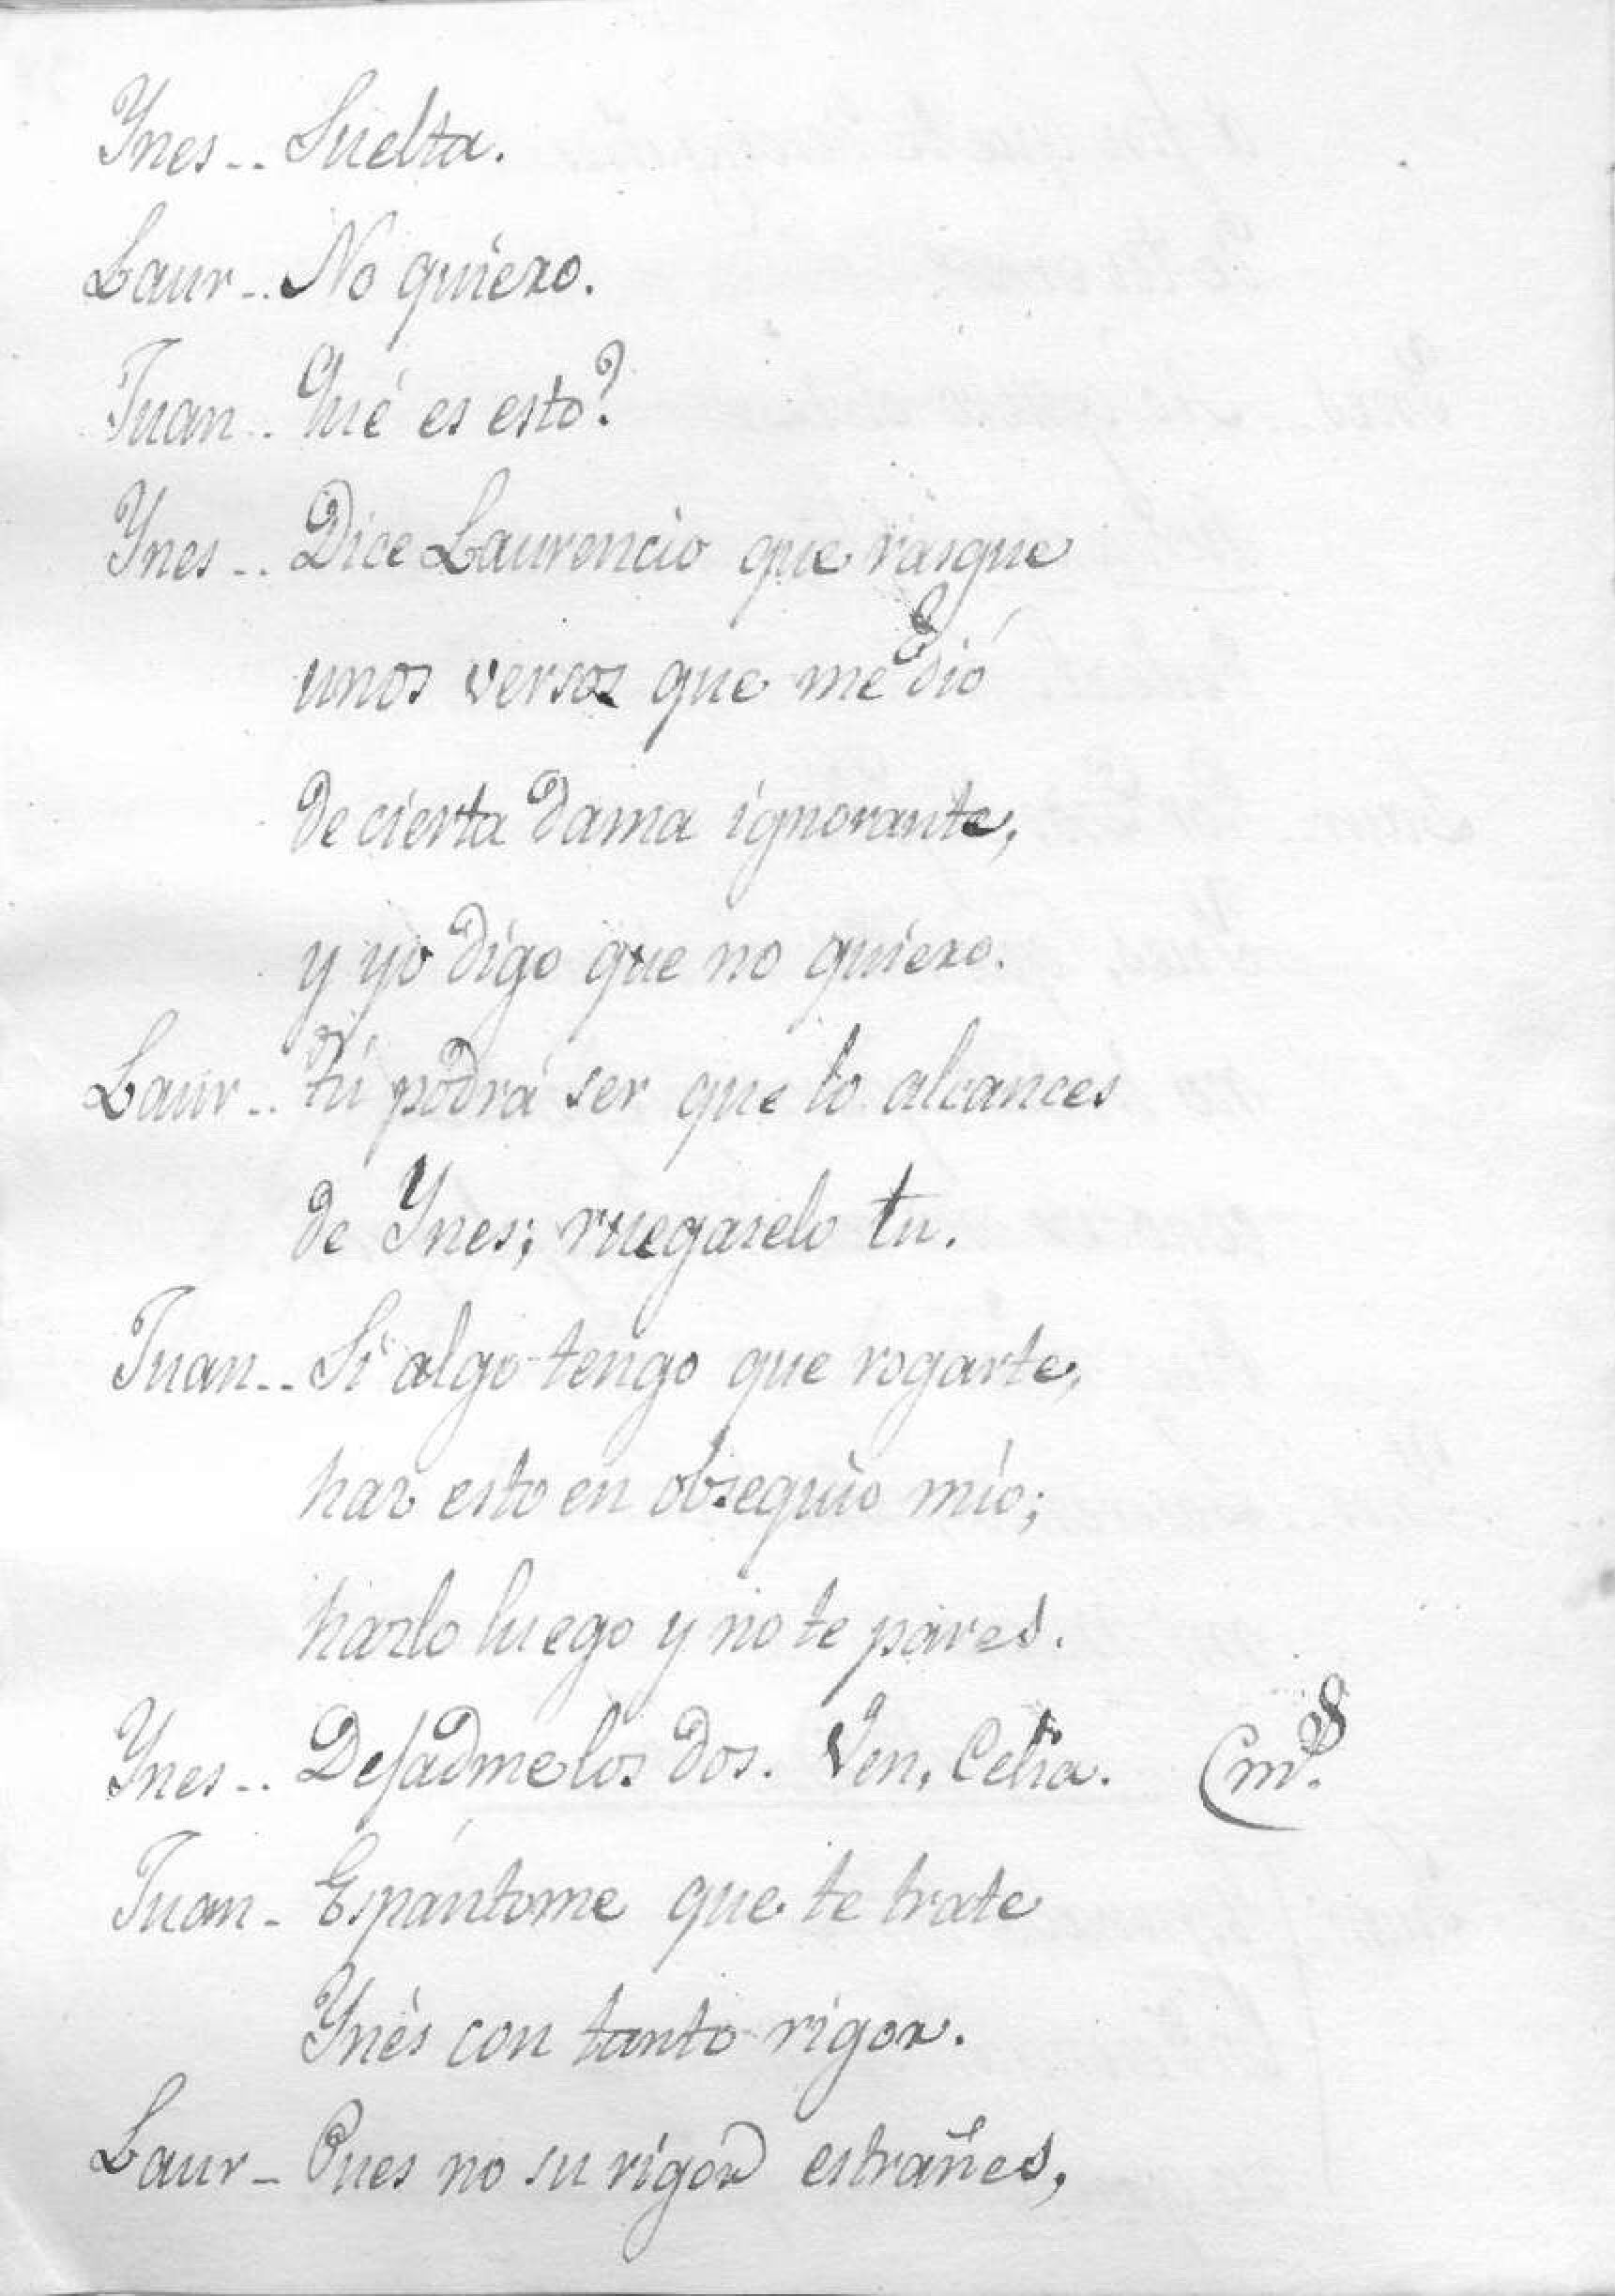 Ynes-- Suelta.
Laur-- No quiero.
Juan-- Qué es esto?
Ynes-- Dice Laurencio que rasgue
unos versos que me dió
de cierta dama ignorante,
y yo digo que no quiero.
Laur-- tú podrá ser que lo alcances
de Ynes; ruegaselo tu.
Juan-- Si algo tengo que rogarte,
haz esto en obsequio mío;
hazlo luego y no te pares.
Ynes-- Dejadme los dos. Ven, Celia.
Juan- Espántome que te trate
Ynés con tanto rigor.
Laur- Pues no su rigor estrañes,